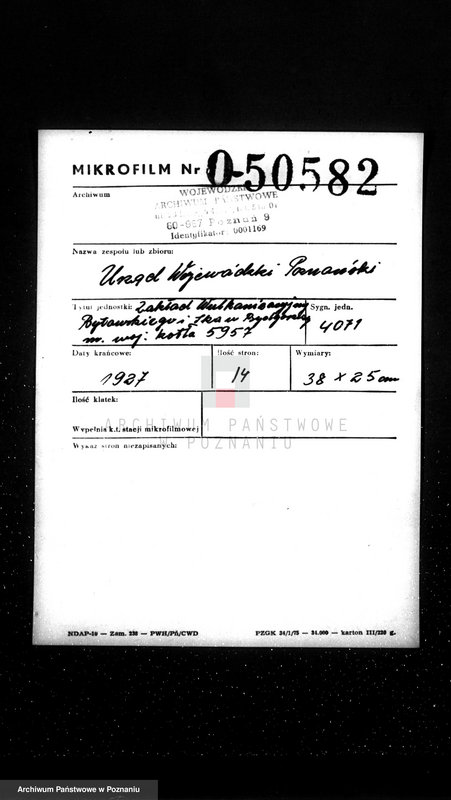 MIKROFILM Nr O-50.582
Archiwum
WOJEWÓDZKIE
ARCHIWUM PAŃSTWOWE
60-967 Poznań 9
Identyfikator: 0001169
Nazwa zespołu lub zbioru:
Urząd Wojewódzki Poznański
Tytuł jednostki: Zakład Wulkanizacyjny
i Ska w Bydgoszczy
nr woj: kotła 5957
Sygn. jedn.
4071
Daty krańcowe:
1927
Ilość stron:
14
Wymiary:
38 x 25 cm
Ilość klatek:
Wypełnia k.t. stacji mikrofilmowej
Wykaz stron niezapisanych:
ARCHIWUM PAŃSTWOWE
W POZNANIU
NDAP-10 — Zam. 238 — PWH/Pń/CWD
PZGK 34/1/75 — 34.000 — karton III/220 g.
Archiwum Państwowe w Poznaniu